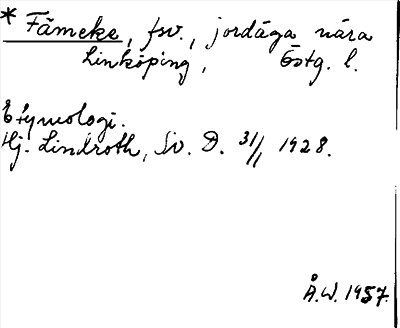 * Fämeke, fsv., jordäga nära
Linköping, Östg. l.
Etymologi.
Hj. Lindroth, Sv. D. 31/1 1928.
Å.W. 1957.